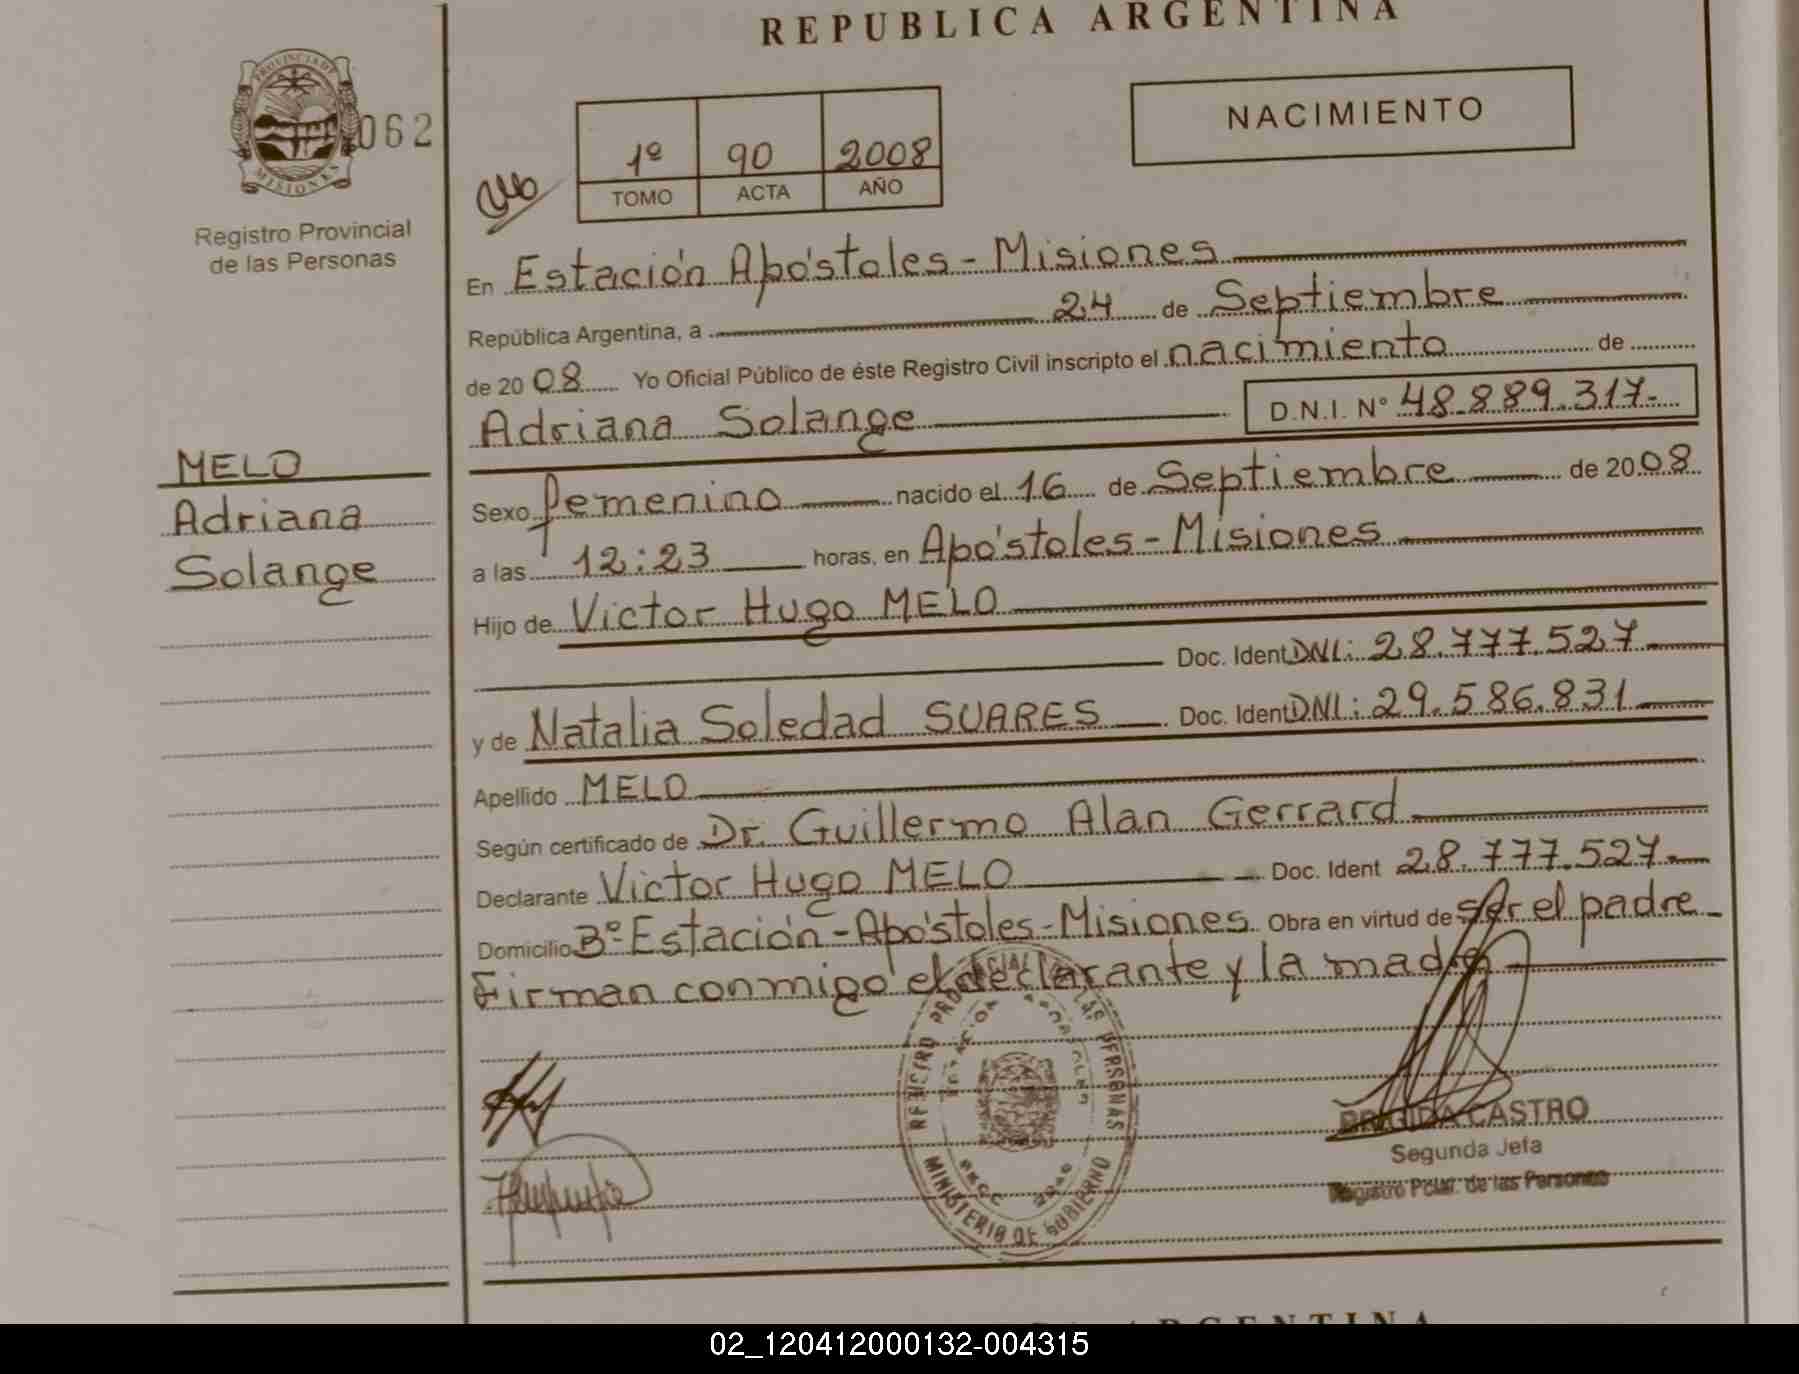 REPUBLICA ARGENTINA
PROVINCIA DE
MISIONES
062
Registro Provincial
de las Personas
NACIMIENTO
1º 90 2008
TOMO ACTA AÑO
En Estación Apóstoles - Misiones
República Argentina, a 24 de Septiembre
de 2008 Yo Oficial Público de éste Registro Civil inscripto el nacimiento de
Adriana Solange D.N.I. Nº 48.889.317.-
MELO
Adriana
Solange
Sexo femenino nacido el 16 de Septiembre de 2008
a las 12:23 horas, en Apóstoles - Misiones
Hijo de Victor Hugo MELO
Doc. Ident DNI: 28.777.527
y de Natalia Soledad SUARES Doc. Ident DNI: 29.586.831
Apellido MELO
Según certificado de Dr. Guillermo Alan Gerrard
Declarante Victor Hugo MELO Doc. Ident 28.777.527.-
Domicilio Bº Estación - Apóstoles - Misiones Obra en virtud de ser el padre
Firman conmigo el declarante y la madre
MINISTERIO DE GOBIERNO
BRIGIDA CASTRO
Segunda Jefa
Registro Pcial. de las Personas
ARGENTINA
02_120412000132-004315